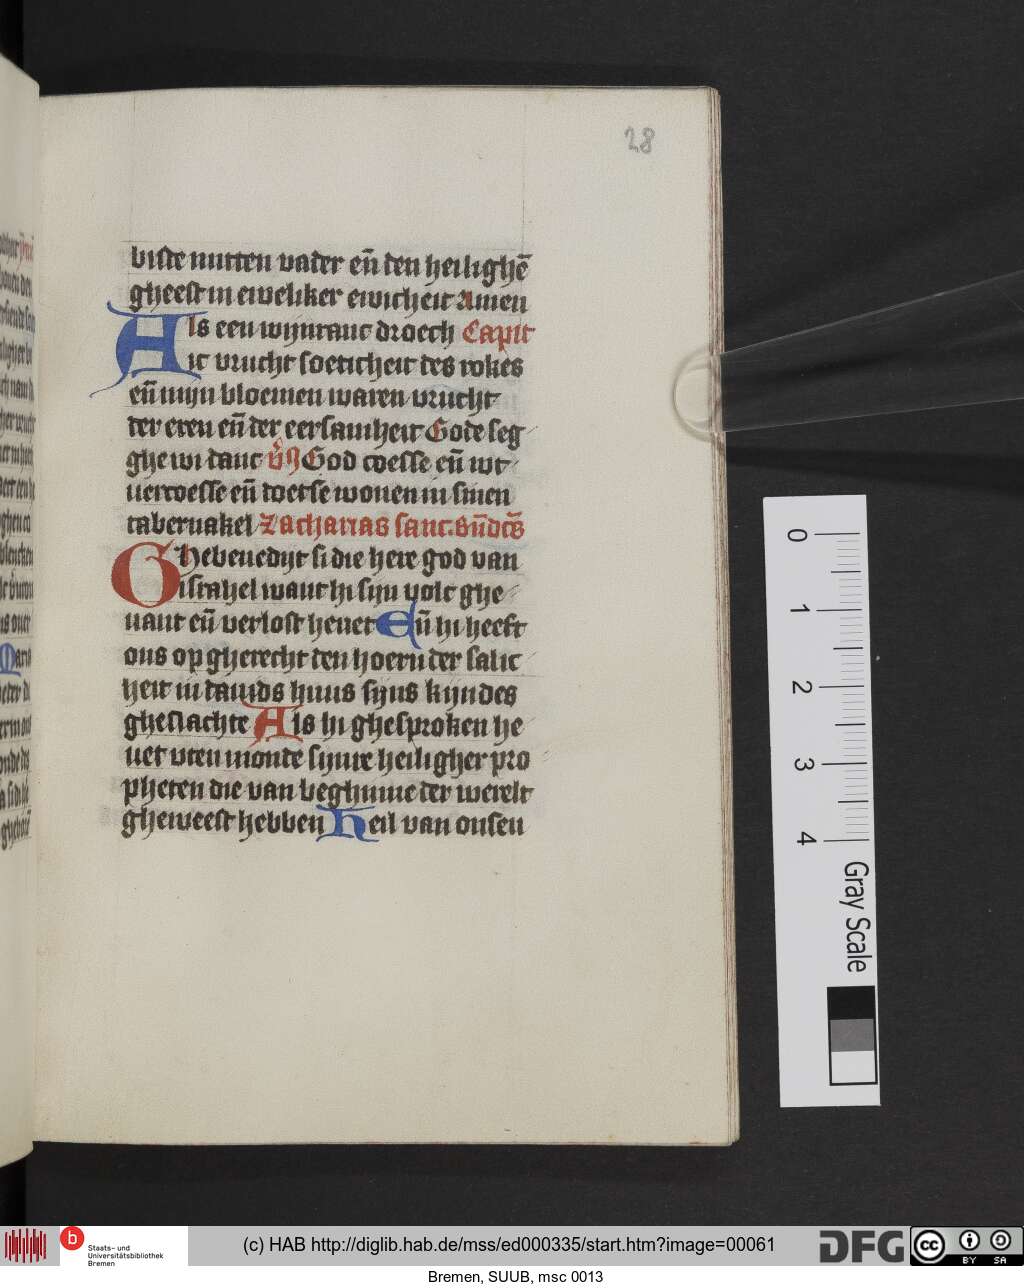 28
biste mitten vader eñ den heilighē
gheest in eweliker ewicheit Amen
Als een wijntanc droech Capit
ic vrucht soeticheit des rokes
eñ mijn bloemen waren vrucht
der eren eñ der eersamheit Gode seg
ghe wi danc God
tabernakel Zacharias sanc.
Ghebenedijt si die here god van
israhel want hi sijn volc ghe
vant eñ verlost hevet Eñ hi heeft
ons op gherecht den hoern der salic
heit in davids huus sijns kijndes
gheslachte Als hi ghesproken he
vet vten monde sijnre heiligher pro
pheten die van beghinne der werelt
gheweest hebben Heil van onsen
0
1
2
3
4
Gray Scale
b
Staats- und
Universitätsbibliothek
Bremen
(c) HAB http://diglib.hab.de/mss/ed000335/start.htm?image=00061
DFG
cc
BY SA
Bremen, SUUB, msc 0013